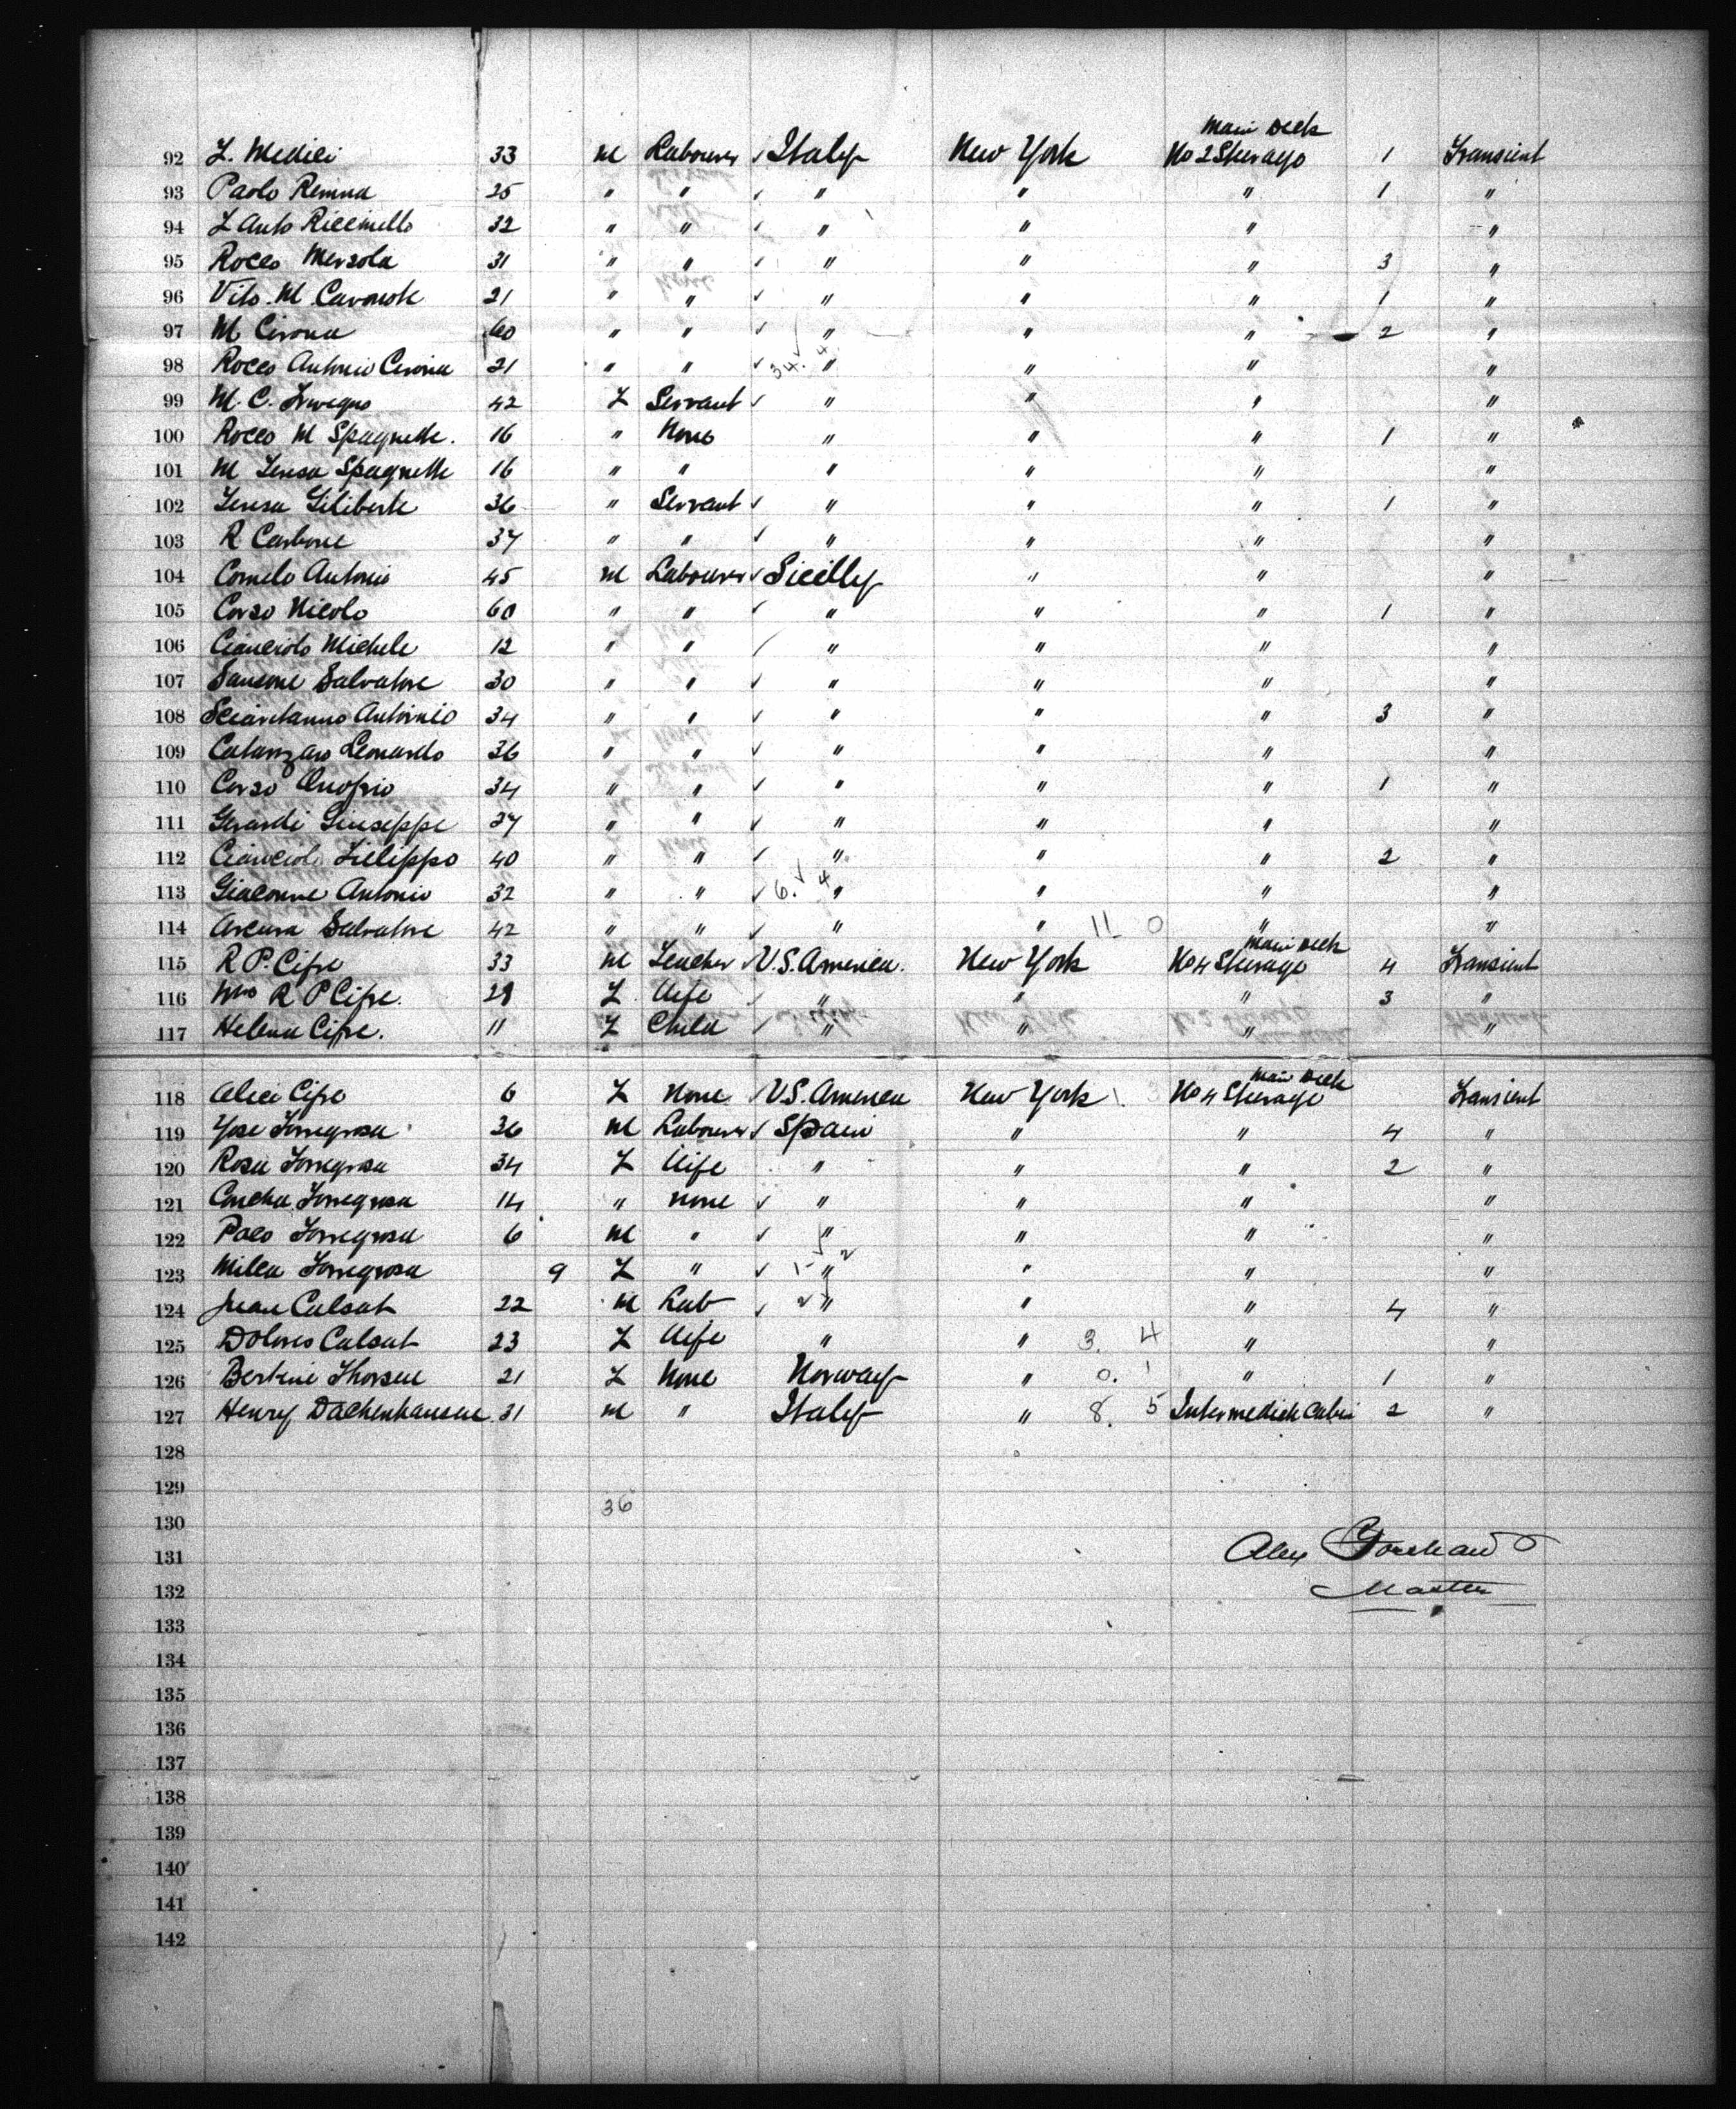 Main Deck
92 L. Medici 33 M Labourer ✓ Italy New York No 2 Steerage 1 Transient
93 Paolo Remma 25 " " ✓ " " " 1 "
94 32 " " ✓ " " " "
95 Rocco Mersola 31 " " ✓ " " " 3 "
96 Vito. M. 21 " " ✓ " " " 1 "
97 M Cirona 60 " " ✓ " " " 2 "
98 Rocco Antonio Cirona 21 " " ✓ 34. 4 " " " "
99 M. C. 42 F Servant ✓ " " " "
100 Rocco M Spagnette. 16 " None " " " 1 "
101 M Teresa Spagnette 16 " " " " " "
102 Teresa Giliberte 36 " Servant ✓ " " " 1 "
103 R Carbone 37 " " ✓ " " " "
104 Comelo Antonio 45 M Labourer ✓ Sicilly " " "
105 Corso Nicolo 60 " " ✓ " " " 1 "
106 Cianciolo Michele 12 " " ✓ " " " "
107 Sansone Salvatore 30 " " ✓ " " " "
108 Sciortanno Antonio 34 " " ✓ " " " 3 "
109 Catanzaro Leonardo 36 " " ✓ " " " "
110 Corso Onofrio 34 " " ✓ " " " 1 "
111 Girardi Giuseppe 27 " " ✓ " " " "
112 Cianciolo Filippo 40 " " ✓ " " " 2 "
113 Giacome Antonio 32 " " ✓ 6. 4 " " " "
114 Arcura Salvatore 42 " " ✓ " " 11 0 " "
Main Deck
115 R P. Cipe 33 M Teacher ✓ U.S. America. New York No 4 Steerage 4 Transient
116 Mrs R P Cipe. 29 F. Wife ✓ " " " 3 "
117 Helena Cipe. 11 F Child ✓ " " " "
Main Deck
118 Alice Cipe 6 F None ✓ U.S. America New York 1. 3 No 4 Steerage Transient
119 Yose Torregrosa 36 M Labourer ✓ Spain " " 4 "
120 Rosa Torregrosa 34 F Wife " " " 2 "
121 Concha Torregrosa 14 " None ✓ " " " "
122 Paco Torregrosa 6 M " ✓ " " " "
123 Milca Torregrosa 9 F " ✓ 1 - 2 " " " "
124 Juan Calsat 22 M Lab ✓ " " " 4 "
125 Dolores Calsat 23 F Wife " " 3. 4 " "
126 Bertine Thorsen 21 F None Norway " 0. 1 " 1 "
127 Henry Dachenhausen 31 M " Italy " 8. 5 Intermediate Cabin 2 "
128
129
36
130
131 Alex
132 Master
133
134
135
136
137
138
139
140
141
142